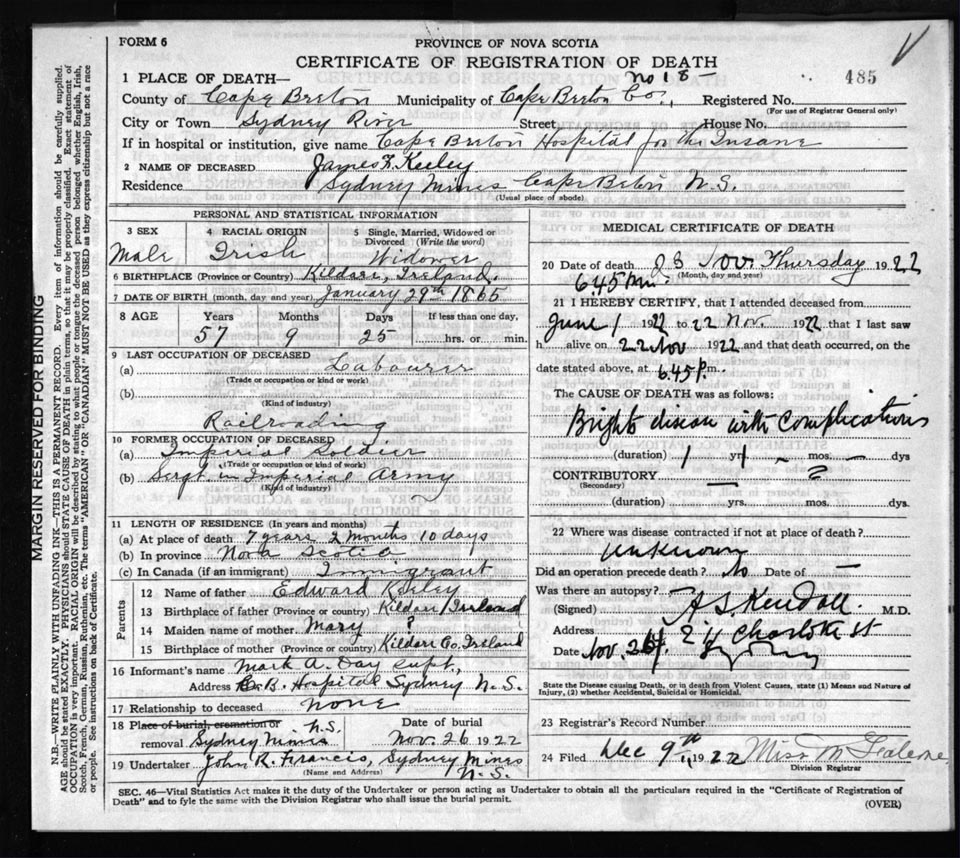 FORM 6
PROVINCE OF NOVA SCOTIA
CERTIFICATE OF REGISTRATION OF DEATH
No 18
485
1 PLACE OF DEATH—
County of Cape Breton Municipality of Cape Breton Co., Registered No.
(For use of Registrar General only)
City or Town Sydney River Street House No.
If in hospital or institution, give name Cape Breton Hospital for the Insane
2 NAME OF DECEASED James F. Keeley
Residence Sydney Mines Cape Breton N.S.
(Usual place of abode)
PERSONAL AND STATISTICAL INFORMATION
3 SEX 4 RACIAL ORIGIN 5 Single, Married, Widowed or Divorced (Write the word)
Male Irish Widower
6 BIRTHPLACE (Province or Country) Kildare, Ireland.
7 DATE OF BIRTH (month, day and year) January 29th 1865
8 AGE Years Months Days If less than one day,
57 9 25 hrs. or min.
9 LAST OCCUPATION OF DECEASED
(a) Labourer
(Trade or occupation or kind or work)
(b)
(Kind of industry)
Railroading
10 FORMER OCCUPATION OF DECEASED
(a) Imperial Soldier
(Trade or occupation or kind of work)
(b) Sergt. Imperial Army
(Kind of industry)
11 LENGTH OF RESIDENCE (In years and months)
(a) At place of death 7 years 2 months 10 days
(b) In province Nova Scotia
(c) In Canada (if an immigrant) Immigrant
Parents
12 Name of father Edward Keeley
13 Birthplace of father (Province or country) Kildare Ireland
14 Maiden name of mother Mary ?
15 Birthplace of mother (Province or country) Kildare Co. Ireland
16 Informant's name Mark A. Day Supt.,
Address C.B. Hospital Sydney N.S.
17 Relationship to deceased none
18 Place of burial, cremation or N.S. Date of burial
removal Sydney Mines Nov. 26 1922
19 Undertaker John R. Francis, Sydney Mines
(Name and Address) N.S.
MEDICAL CERTIFICATE OF DEATH
20 Date of death Nov. Thursday 1922
(Month, day and year)
6.45
21 I HEREBY CERTIFY, that I attended deceased from
June 1 1922 to 22 Nov. 1922 that I last saw
h alive on 22 Nov 1922 and that death occurred, on the
date stated above, at 6.45 P. m.
The CAUSE OF DEATH was as follows:
Brights disease with complications
(duration) 1 yrs. — mos. — dys
CONTRIBUTORY — ?
(Secondary)
(duration) yrs. mos. dys.
22 Where was disease contracted if not at place of death?
Unknown
Did an operation precede death? No Date of —
Was there an autopsy?
(Signed) A S Kendall. M.D.
Address Charlotte St
Date Nov. 26 Sydney
State the Disease causing Death, or in death from Violent Causes, state (1) Means and Nature of
Injury, (2) whether Accidental, Suicidal or Homicidal.
23 Registrar's Record Number
24 Filed Dec 9th, 1922 Miss M
Division Registrar
SEC. 46—Vital Statistics Act makes it the duty of the Undertaker or person acting as Undertaker to obtain all the particulars required in the "Certificate of Registration of
Death" and to fyle the same with the Division Registrar who shall issue the burial permit.
(OVER)
MARGIN RESERVED FOR BINDING
N.B.—WRITE PLAINLY WITH UNFADING INK—THIS IS A PERMANENT RECORD. Every item of information should be carefully supplied.
AGE should be stated EXACTLY. PHYSICIANS should STATE CAUSE OF DEATH in plain terms, so that it may be properly classified. Exact statement of
OCCUPATION is very important. RACIAL ORIGIN will be described by stating to what people or tongue the deceased person belonged, whether English, Irish,
Scotch, French, German, Russian, Ruthenian, etc. The terms "AMERICAN" OR "CANADIAN" MUST NOT BE USED as they express citizenship but not a race
or people. See instructions on back of Certificate.